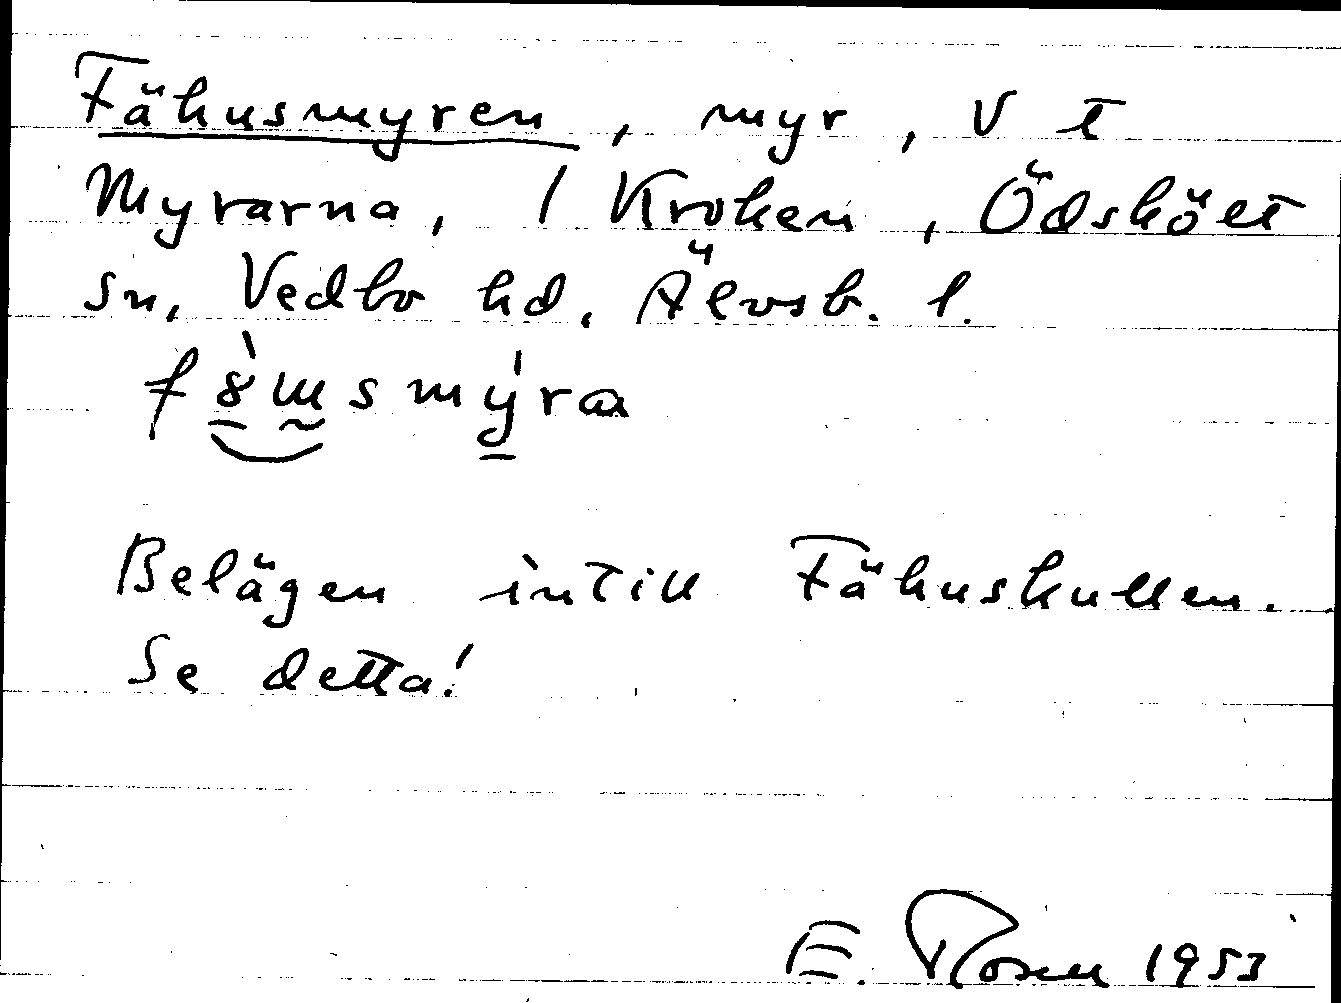 Fähusmyren, myr, V t
Myrarna, 1 Kroken, Ödsköet
sn, Vedbo hd, Älvsb. l.
Belägen intill Fähuskullen.
Se detta!
E. Rosell 1953